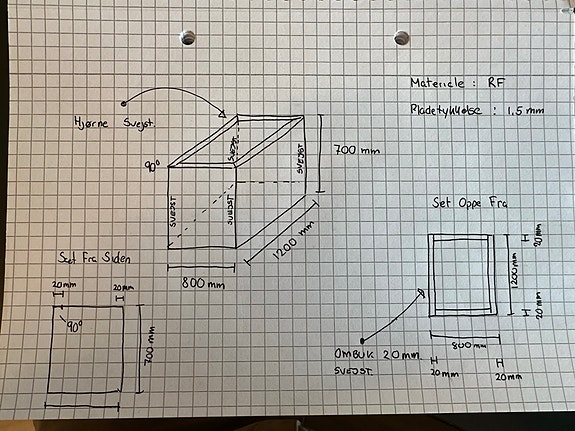 Materiele : RF
Pladetykkelse : 1.5 mm
Hjørne Svejst.
90°
SVEJST
SVEJST
SVEJST
SVEJST
700 mm
1200 mm
800 mm
Set Oppe Fra
20 mm
1200 mm
20 mm
800 mm
20 mm
20 mm
OMBUK 20 mm.
SVEJST.
Set Fra Siden
20 mm
20 mm
90°
700 mm